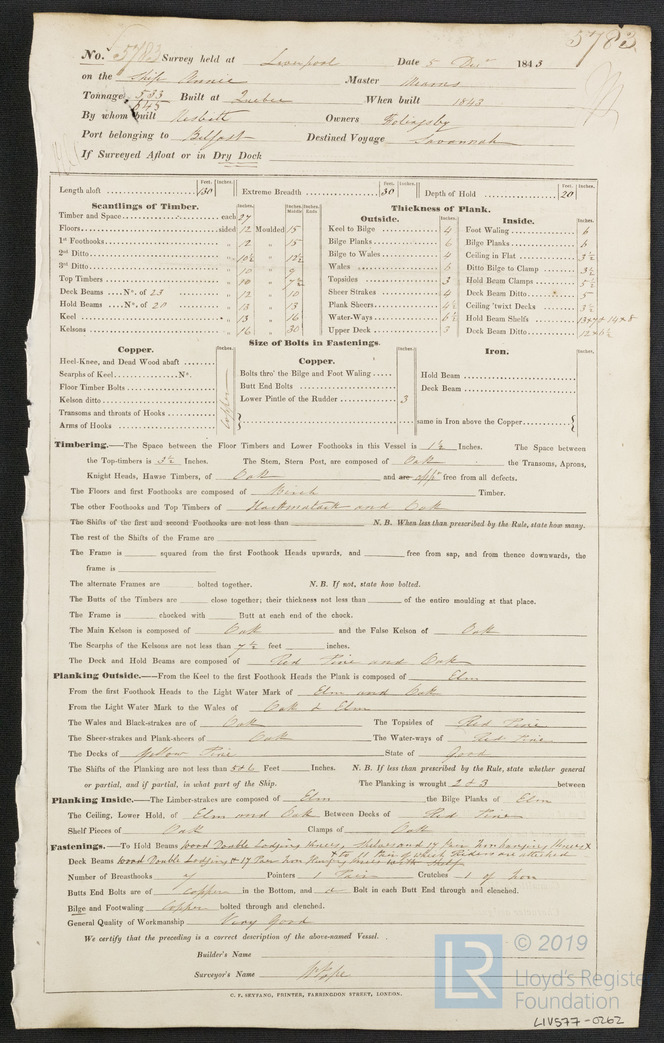 5783
No. 5783 Survey held at Liverpool Date 5 Decr 1843
on the Ship Annie Master Mearns
Tonnage, 533 Built at Quebec When built 1843
545
By whom built Nesbitt Owners
Port belonging to Belfast Destined Voyage Savannah
If Surveyed Afloat or in Dry Dock
Feet. Inches. Feet. Inches. Feet. Inches.
Length aloft 130 Extreme Breadth 30 Depth of Hold 20
Scantlings of Timber. Thickness of Plank.
Inches. Inches. Middle Inches. Ends Outside. Inches. Inside. Inches.
Timber and Space each 27 Keel to Bilge 4 Foot Waling 6
Floors sided 12 Moulded 15 Bilge Planks 6 Bilge Planks 6
1st Foothooks „ 12 „ 15 Bilge to Wales 4 Ceiling in Flat 3½
2nd Ditto „ 10½ „ 12½ Wales 6 Ditto Bilge to Clamp 3½
3rd Ditto „ 10 „ 9 Topsides 3 Hold Beam Clamps 5½
Top Timbers „ 10 „ 7½ Sheer Strakes 4 Deck Beam Ditto 5
Deck Beams No. of 23 „ 12 „ 10 Plank Sheers 4½ Ceiling 'twixt Decks 3½
Hold Beams No. of 20 „ 13 „ 13 Water-Ways 6½ Hold Beam Shelfs 13+7 + 14+8
Keel „ 13 „ 16 Upper Deck 3 Deck Beam Ditto 12+6½
Kelsons „ 16 „ 30
Size of Bolts in Fastenings.
Copper. Inches. Copper. Inches. Iron. Inches.
Heel-Knee, and Dead Wood abaft
Scarphs of Keel No. Bolts thro' the Bilge and Foot Waling Hold Beam
Floor Timber Bolts Butt End Bolts Deck Beam
Kelson ditto Lower Pintle of the Rudder 3
Transoms and throats of Hooks
Arms of Hooks same in Iron above the Copper
Copper
Timbering.—The Space between the Floor Timbers and Lower Foothooks in this Vessel is 1½ Inches. The Space between
the Top-timbers is 3½ Inches. The Stem, Stern Post, are composed of Oak the Transoms, Aprons,
Knight Heads, Hawse Timbers, of Oak and are appr free from all defects.
The Floors and first Foothooks are composed of Birch Timber.
The other Foothooks and Top Timbers of Hackmatack and Oak
The Shifts of the first and second Foothooks are not less than N. B. When less than prescribed by the Rule, state how many.
The rest of the Shifts of the Frame are
The Frame is squared from the first Foothook Heads upwards, and free from sap, and from thence downwards, the
frame is
The alternate Frames are bolted together. N. B. If not, state how bolted.
The Butts of the Timbers are close together; their thickness not less than of the entire moulding at that place.
The Frame is chocked with Butt at each end of the chock.
The Main Kelson is composed of Oak and the False Kelson of Oak
The Scarphs of the Kelsons are not less than 7½ feet inches.
The Deck and Hold Beams are composed of Red Pine and Oak
Planking Outside.—From the Keel to the first Foothook Heads the Plank is composed of Elm
From the first Foothook Heads to the Light Water Mark of Elm and Oak
From the Light Water Mark to the Wales of Oak & Elm
The Wales and Black-strakes are of Oak The Topsides of Red Pine
The Sheer-strakes and Plank-sheers of Oak The Water-ways of Red Pine
The Decks of Yellow Pine State of Good
The Shifts of the Planking are not less than 5 & 6 Feet Inches. N. B. If less than prescribed by the Rule, state whether general
or partial, and if partial, in what part of the Ship. The Planking is wrought 2 & 3 between
Planking Inside.—The Limber-strakes are composed of Elm the Bilge Planks of Elm
The Ceiling, Lower Hold, of Elm and Oak Between Decks of Red Pine
Shelf Pieces of Oak Clamps of Oak
Fastenings.—To Hold Beams wood Double Lodging Knees, Shelves and 17 Pair Iron hanging Knees x
x to 11 Pair of which Riders are attached
Deck Beams wood Double Lodging & 17 Pair Iron Hanging Knees with Shelf
Number of Breasthooks 7 Pointers 1 Pair Crutches 1 of Iron
Butts End Bolts are of Copper in the Bottom, and a Bolt in each Butt End through and clenched.
Bilge and Footwaling Copper bolted through and clenched.
General Quality of Workmanship Very Good
We certify that the preceding is a correct description of the above-named Vessel.
Builder's Name
Surveyor's Name W Pope
C. F. SEYFANG, PRINTER, FARRINGDON STREET, LONDON.
LR © 2019
Lloyd's Registe
Foundation
LIV577-0262